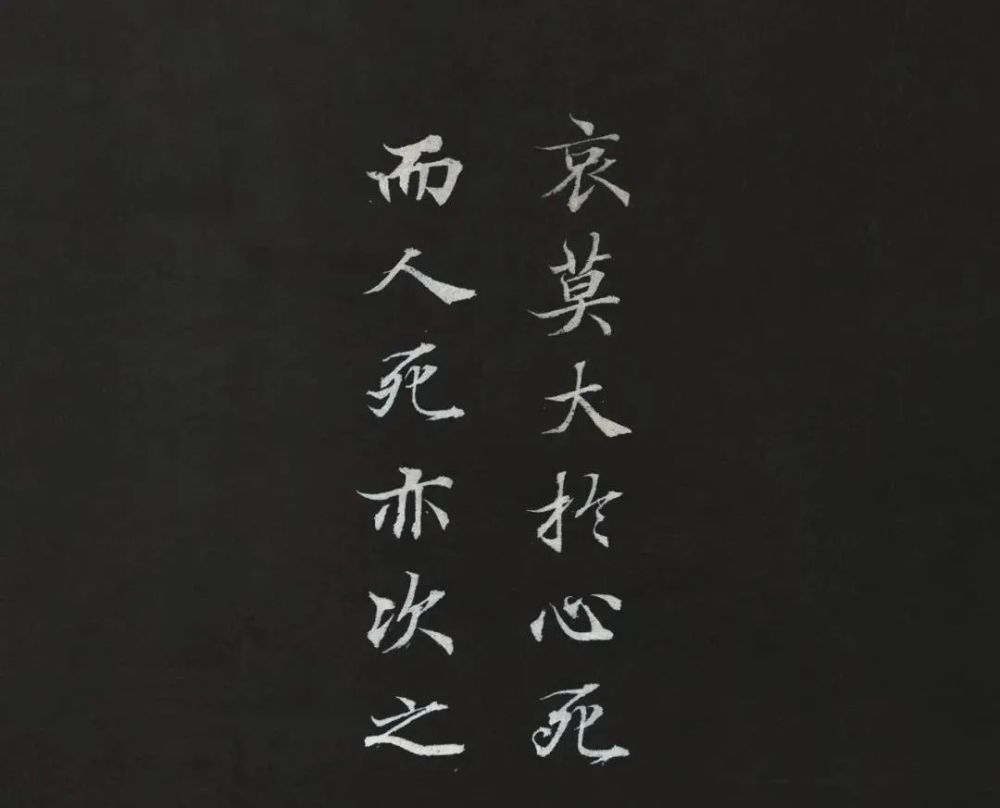 哀莫大於心死
而人死亦次之